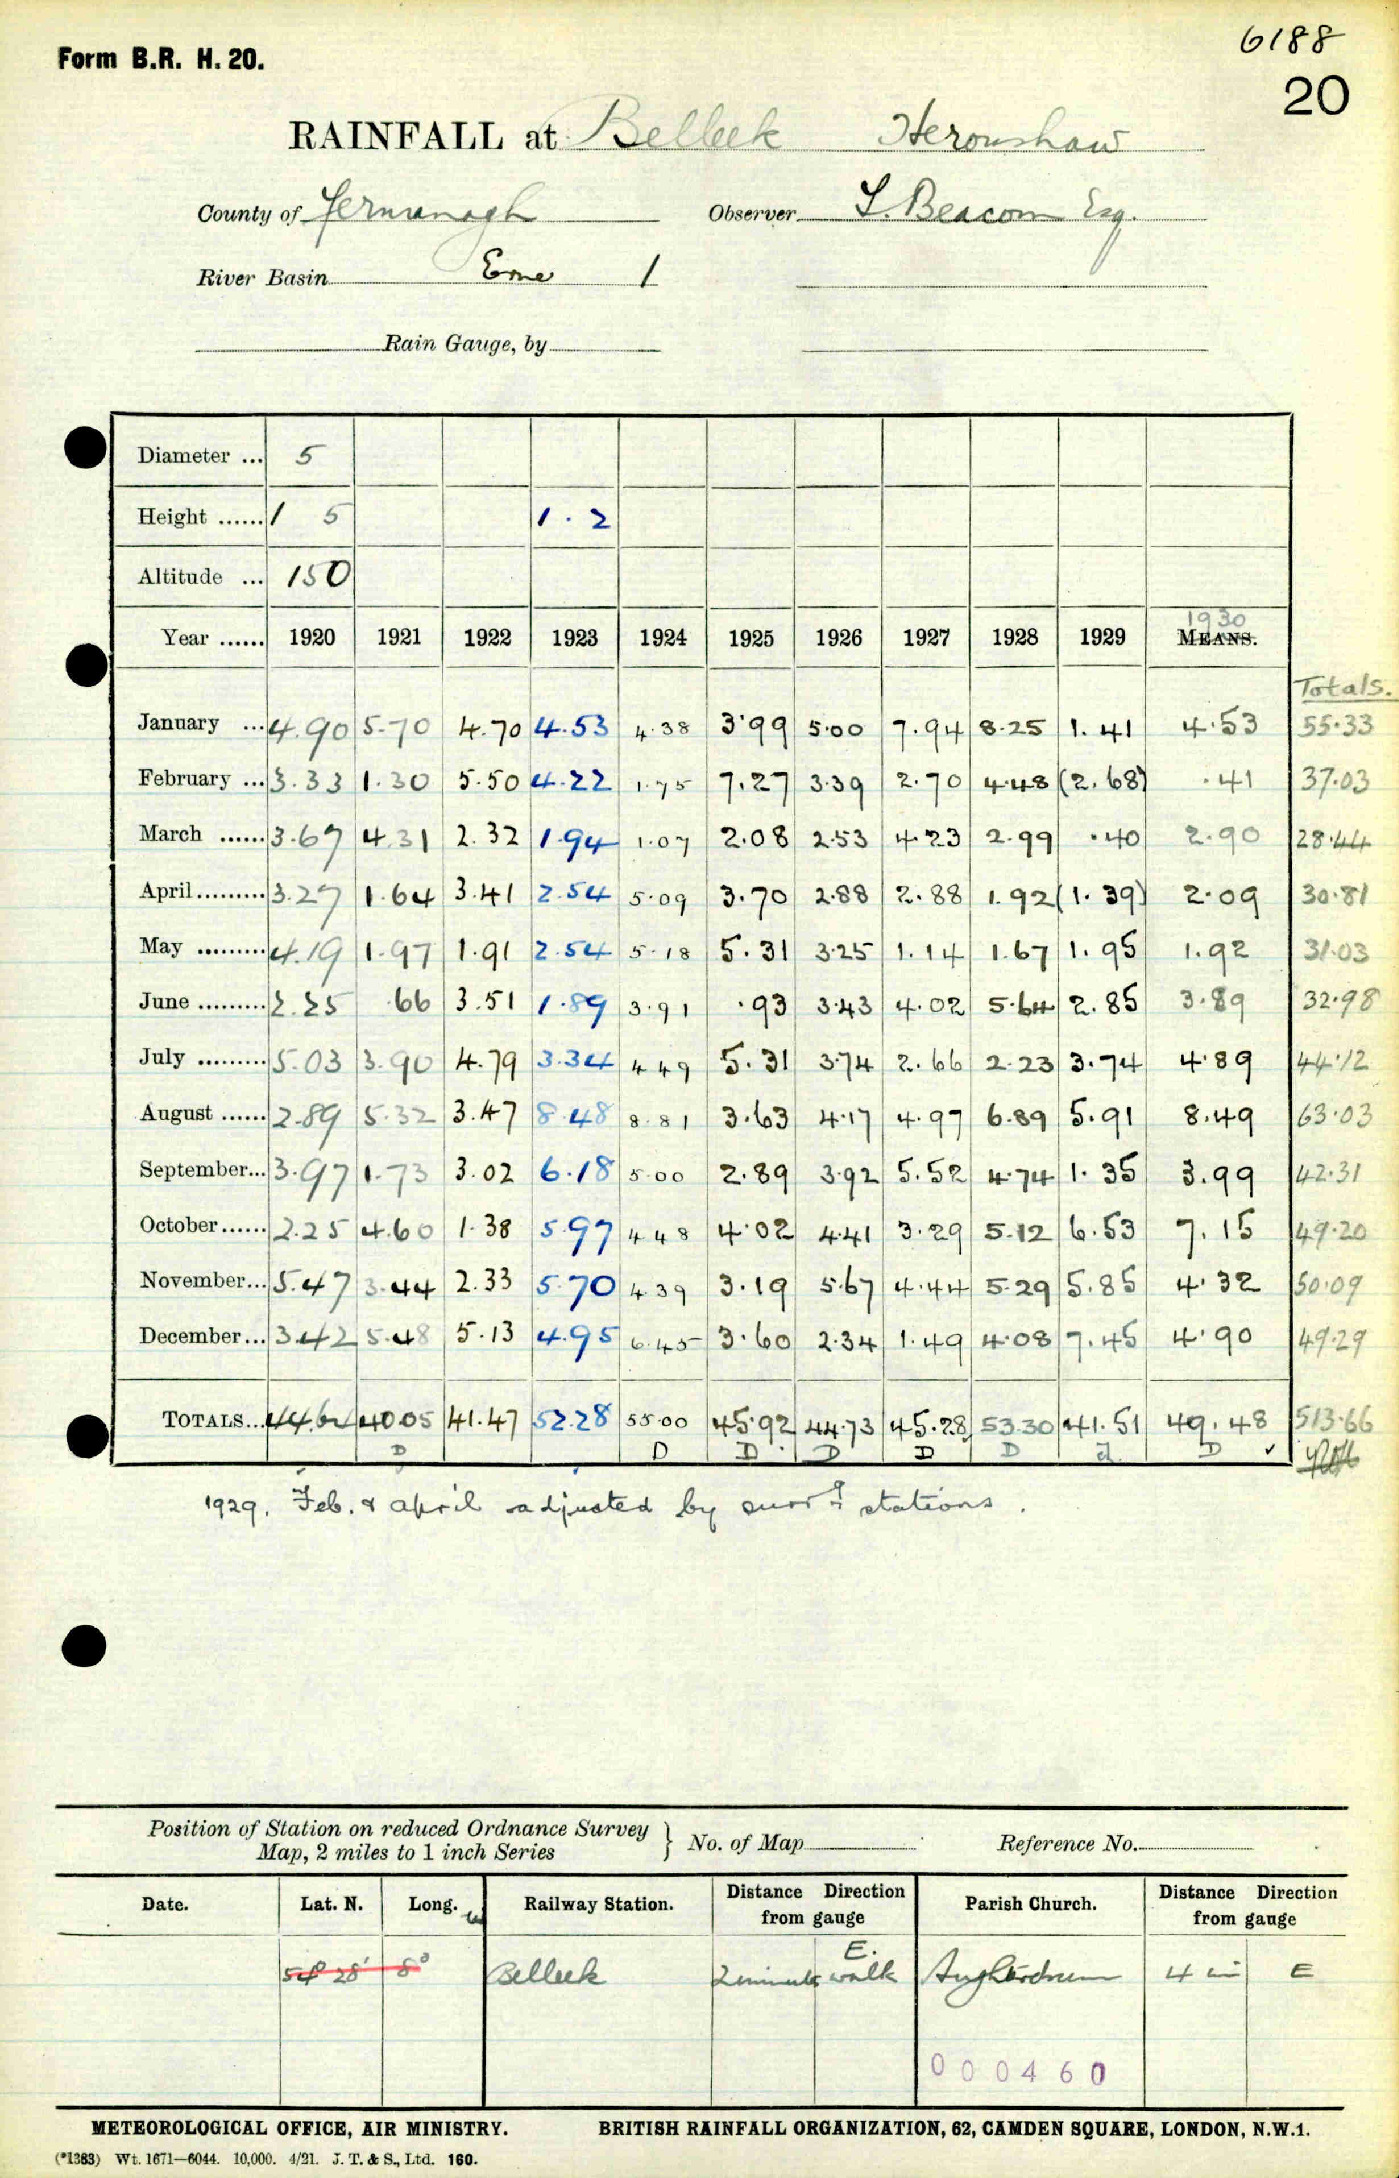 6188
Form B.R. H. 20.
20
RAINFALL at Belleek Heronshaw
County of Fermanagh Observer L. Beacom Esq.
River Basin Erne 1
Rain Gauge, by
Diameter ... 5
Height ...... 1 5 1 . 2
Altitude ... 150
1930
Year ...... 1920 1921 1922 1923 1924 1925 1926 1927 1928 1929 MEANS.
Totals.
January ... 4.90 5.70 4.70 4.53 4.38 3.99 5.00 7.94 8.25 1.41 4.53 55.33
February ... 3.33 1.30 5.50 4.22 1.75 7.27 3.39 2.70 4.48 (2.68) .41 37.03
March ...... 3.67 4.31 2.32 1.94 1.07 2.08 2.53 4.23 2.99 .40 2.90 28.44
April ......... 3.27 1.64 3.41 2.54 5.09 3.70 2.88 2.88 1.92 (1.39) 2.09 30.81
May ......... 4.19 1.97 1.91 2.54 5.18 5.31 3.25 1.14 1.67 1.95 1.92 31.03
June ......... 2.25 .66 3.51 1.89 3.91 .93 3.43 4.02 5.64 2.85 3.89 32.98
July ......... 5.03 3.90 4.79 3.34 4 49 5.31 3.74 2.66 2.23 3.74 4.89 44.12
August ...... 2.89 5.32 3.47 8.48 8.81 3.63 4.17 4.97 6.89 5.91 8.49 63.03
September... 3.97 1.73 3.02 6.18 5.00 2.89 3.92 5.52 4.74 1.35 3.99 42.31
October...... 2.25 4.60 1.38 5.97 4 48 4.02 4.41 3.29 5.12 6.53 7.15 49.20
November... 5.47 3.44 2.33 5.70 4 39 3.19 5.67 4.44 5.29 5.85 4.32 50.09
December... 3.42 5.48 5.13 4.95 6.45 3.60 2.34 1.49 4.08 7.45 4.90 49.29
TOTALS... 44.64 40.05 41.47 52.28 55.00 45.92 44.73 45.28 53.30 41.51 49.48 513.66
D D D D D D D ✓
1929. Feb. & April adjusted by surrg stations.
Position of Station on reduced Ordnance Survey
Map, 2 miles to 1 inch Series } No. of Map Reference No.
Date. Lat. N. Long. W Railway Station. Distance Direction from gauge Parish Church. Distance Direction from gauge
54° 28' 8° Belleek 2 minutes walk E. 4 m E
000460
METEOROLOGICAL OFFICE, AIR MINISTRY. BRITISH RAINFALL ORGANIZATION, 62, CAMDEN SQUARE, LONDON, N.W.1.
(*1383) Wt. 1671—6044. 10,000. 4/21. J. T. & S., Ltd. 160.